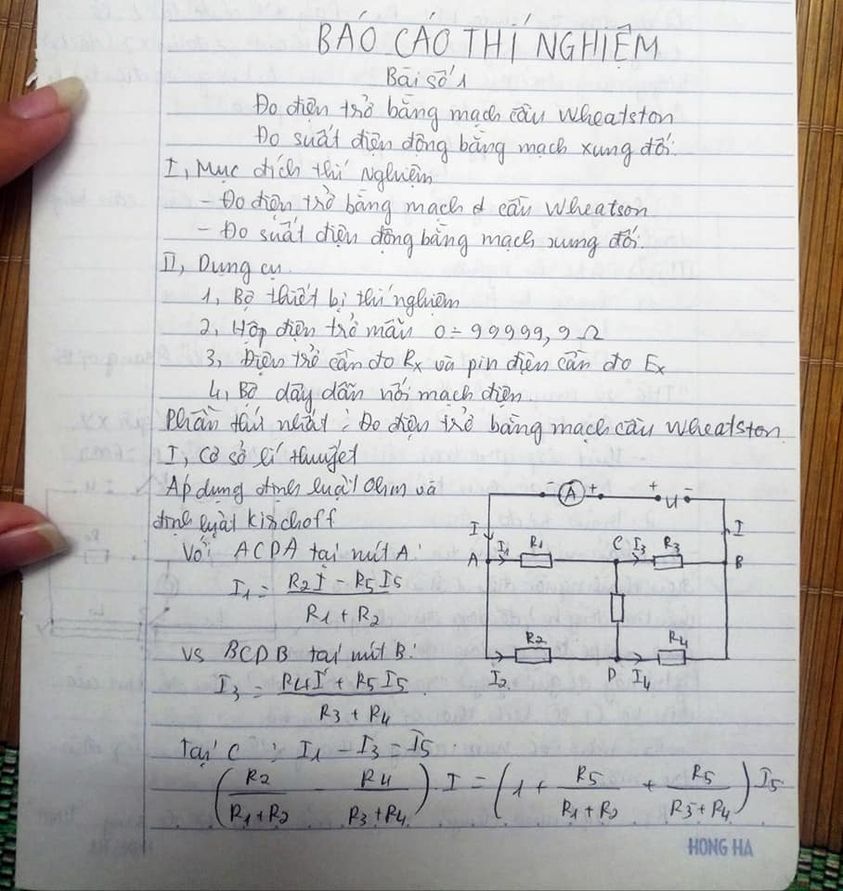 BÁO CÁO THÍ NGHIỆM
Bài số 1
Đo điện trở bằng mạch cầu Wheatston
Đo suất điện động bằng mạch xung đối.
I, Mục đích thí nghiệm
- Đo điện trở bằng mạch cầu Wheatson
- Đo suất điện động bằng mạch xung đối.
II, Dụng cụ
1, Bộ thiết bị thí nghiệm
2, Hộp điện trở mẫu 0 ÷ 99999,9 Ω
3, Điện trở cần đo Rx và pin điện cần đo Ex
4, Bộ dây dẫn nối mạch điện.
Phần thứ nhất : Đo điện trở bằng mạch cầu Wheatston
I, Cơ sở lí thuyết
Áp dụng định luật Ohm và
định luật Kirchoff
Với ACDA tại nút A:
I1 = (R2I - R5I5) / (R1 + R2)
vs BCDB tại nút B:
I3 = (R4I + R5I5) / (R3 + R4)
Tại C : I1 - I3 = I5
(R2 / (R1+R2) - R4 / (R3+R4)) . I = (1 + R5 / (R1+R2) + R5 / (R3+R4)) I5
- A + + U -
I I
A I1 R1 C I3 R3 B
R2 R4
I2 D I4
HONG HA